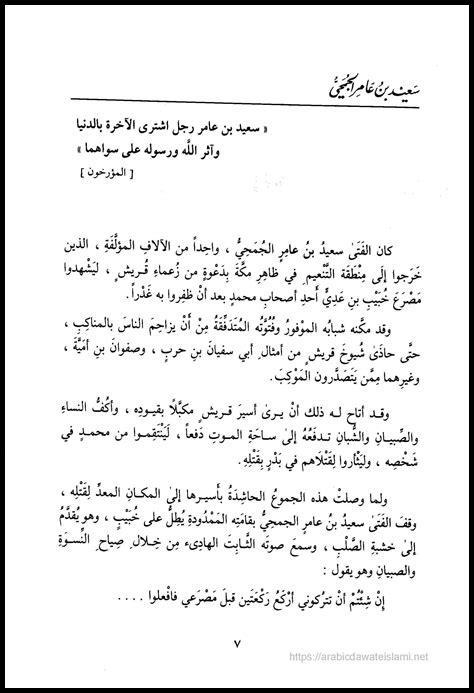 سَعيد بنُ عَامِر الجُمَحِيُّ
« سعيد بن عامر رجل اشترى الآخرة بالدنيا
وآثر اللَّه ورسوله على سواهما »
[ المؤرخون ]
كان الفَتَىٰ سعيدُ بنُ عامرٍ الجُمَحِيُّ ، واحِداً من الآلافِ المؤلَّفَةِ ، الذين
خَرَجوا إلى مِنْطَقة التَّنْعيم في ظاهِرِ مكَّةَ بِدَعْوةٍ من زُعماءِ قُريشٍ ، ليَشْهدوا
مَصْرَعَ خُبَيْبِ بنِ عَدِيٍّ أَحدِ أصحابِ محمدٍ بعد أنْ ظَفِروا به غَدْراً .
وقد مكَّنه شبابُه المَوْفورُ وفُتُوَّتُه المُتَدفِّقَةُ مِنْ أَنْ يزاحِمَ الناسَ بالمناكِبِ ،
حتَّى حاذَىٰ شُيوخَ قريشٍ من أمثالِ أبي سفيانَ بنِ حربٍ ، وصفوانَ بنِ أُمَيَّةَ ،
وغيرِهما مِمَّن يَتَصَدَّرون المَوْكِبَ .
وقـد أتاح لـه ذلك أنْ يـرىٰ أسيرَ قريـشٍ مكبَّلًا بقيودِه ، وأكُفُّ النساءِ
والصِّبيـانِ والشُّبانِ تـدفَعُه إلىٰ سَاحـةِ المـوتِ دَفعاً ، ليَنْتَقِمـوا من محمـدٍ في
شَخْصِه ، وليَثْأروا لِقَتْلاهم في بَدْرٍ بِقَتْلِه .
ولما وصلتْ هذه الجموعُ الحاشِدَةُ بأسيـرها إلىٰ المكـانِ المعدِّ لِقَتْلِه ،
وقفَ الفَتىٰ سعيدُ بنُ عامرٍ الجمحيُّ بِقَامتِه المَمْدُودةِ يُطِلُّ علىٰ خُبَيْبٍ ، وهو يُقدَّمُ
إلىٰ خشبةِ الصَّلْبِ ، وسمعَ صوتَه الثَّابِتَ الهادِىءَ مِن خِـلالِ صِياحِ النِّسوَةِ
والصبيانِ وهو يقول :
إِن شِئْتُمْ أنْ تتركوني أرْكَعُ ركْعَتَين قبلَ مَصْرَعي فافْعلوا . . . .
٧
https://arabicdawateislami.net